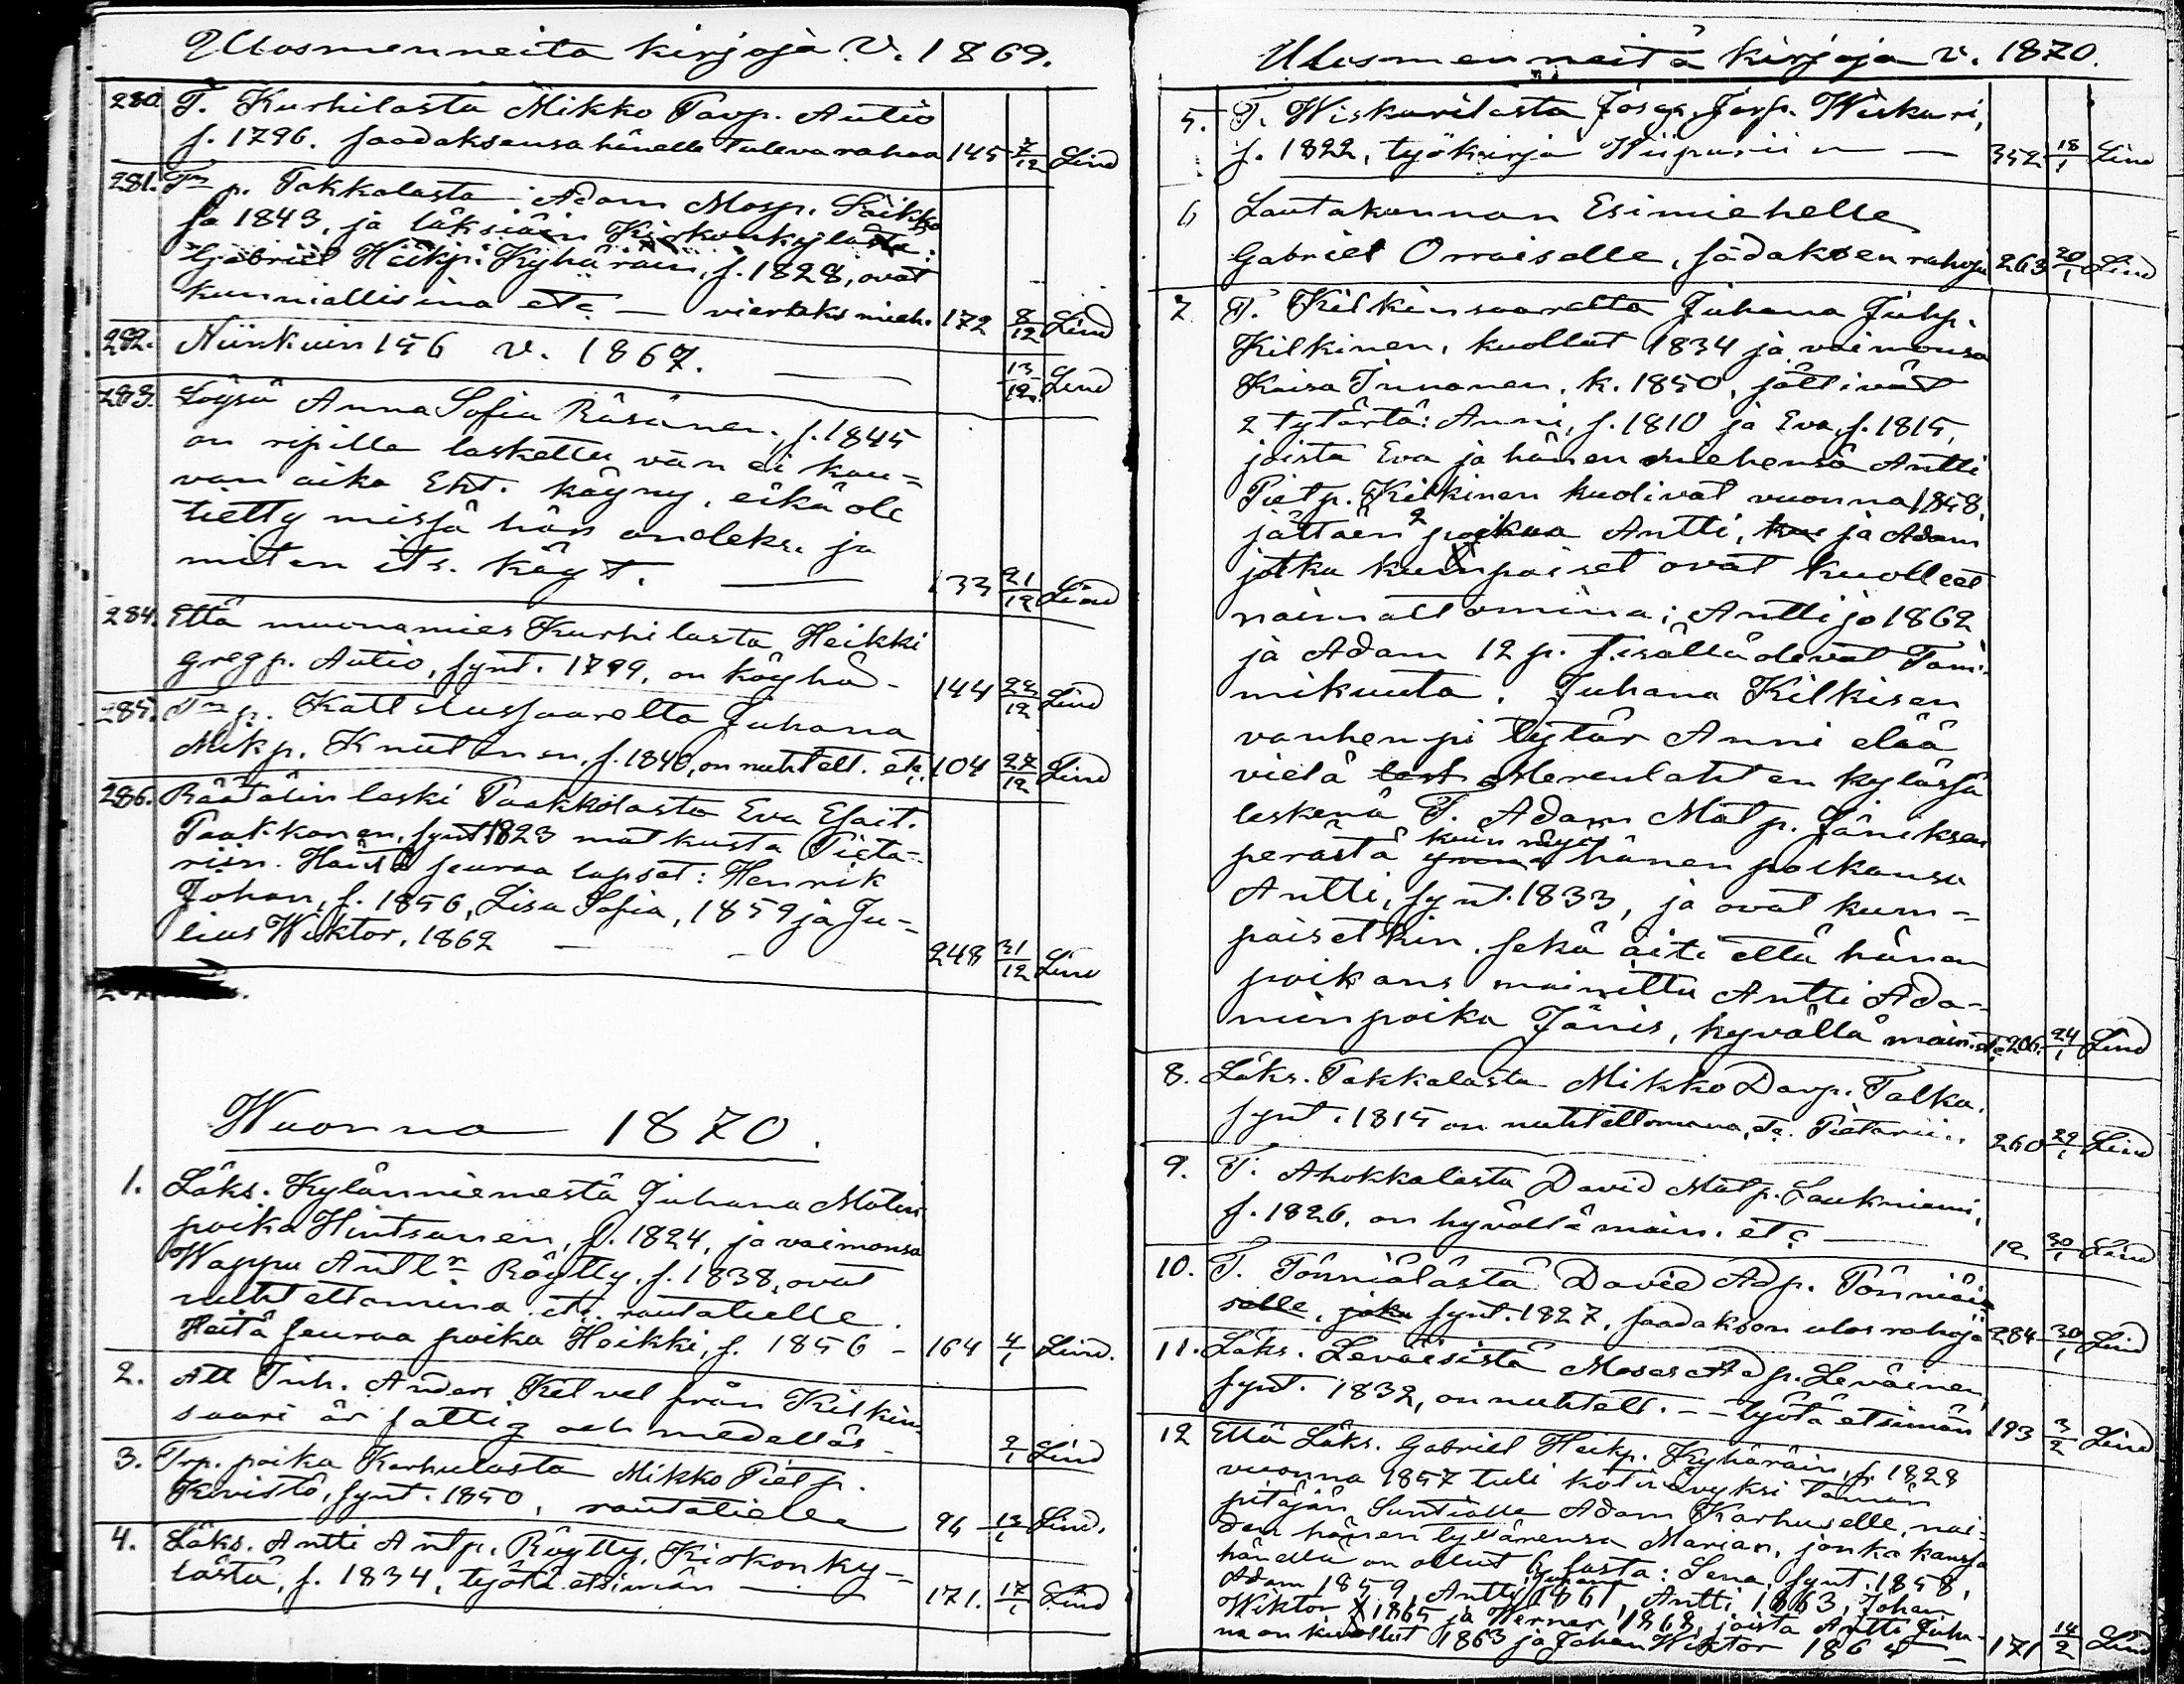 Ulosmenneitä kirjoja V. 1869.
280. T. Kurhilasta Mikko Pavp. Autio
s. 1796. saadaksensa hänelle tuleva rahaa 145 7/12 Lind
281. Tm p. Takkalasta Adam Mosp. Säikko
sa 1843, ja läksiäin Kirkonkylästä:
Gabriel Heikp. Kyhäräin, s. 1828, ovat
kunniallisina etc. — vierteks mieh. 172 8/12 Lind
282. Niinkuin 156 v. 1867. — 13/12 Lind
283. Löysä Anna Sofia Räsänen, s. 1845
on ripille laskettu vän ei kau=
van aika Eht. käyny, eikä ole
tietty missä hän oneleks. ja
miten its. käyt. — 133 21/12 Lind
284. Että muonamies Kurhilasta Heikki
Gregp. Autio, synt. 1799, on köyhä - 144 24/12 Lind
285. Tm p. Kattelussaarelta Juhana
Mikp. Knutinen, s. 1840, on nuhtelt. etc. 104 27/12 Lind
286. Räätälin leski Paakkolasta Eva Esait.
Paakkonen, synt 1823 matkusta Pieta-
riin. Häntä seuraa lapset: Henrik
Johan, s. 1856, Lisa Sofia, 1859 ja Ju-
lius Wiktor, 1862 — 248 31/12 Lind
Wuonna 1870.
1. Läks. Kylänniemestä Juhana Matin
poika Hintsanen, s. 1824, ja vaimonsa
Wappu Anttr Röytty, s. 1838, ovat
nuhtettomina etc. rautatielle.
Heitä seuraa poika Heikki, s. 1856 - 164 4/1 Lind.
2. Att Inh. Anders Kelvel från Kilkin-
saari är fattig och medellös - 9/1 Lind
3. Trp. poika Karhulasta Mikko Pietp.
Kavistö, synt. 1850, rautatielle 96 13/1 Lind.
4. Läks. Antti Antp. Röytty, Kirkonky=
lästä, s. 1834, työtä etsimän — 171. 17/1 Lind
Ulosmenneitä kirjoja v. 1870.
5. T. Wiskarilasta Josep. Wiskari,
s. 1822, työkirja Wiipuriin — 352 18/1 Lind
6 Lautakunnan Esimiehelle
Gabriel Orraiselle, sadaksen rahoja 263 20/1 Lind
7 T. Kilkinsaarelta Juhana Juhp.
Kilkinen, kuollut 1834 ja vaimonsa
Kaisa Innanen, k. 1850, jättivät
2 tytärtä: Anni, s. 1810 ja Eva, s. 1815,
joista Eva ja hänen miehensä Antti
Pietp. Kilkinen kuolivat vuonna 1858,
jättäen 2 poikaa Antti, ja Adam
jotka kumpaiset ovat kuolleet
naimattomina; Antti jo 1862
ja Adam 12 p. sisällä olevat Tam-
mikuuta. Juhana Kilkisen
vanhempi tytär Anni elää
vielä Merenlahten kylässä
leskenä T. Adam Matp. Jäniksen
perästä kuin myös hänen poikansa
Antti, synt. 1833, ja ovat kum=
paisetkin, sekä äiti että hänen
poikans mainittu Antti Ada=
minpoika Jänis, hyvällä main. etc. 206. 24/1 Lind
8. Läks. Takkalasta Mikko Davp. Talka,
synt. 1815 on nuhtettomana, etc. Pietariin. 260 29/1 Lind
9. T. Ahokkalasta David Matp. Laukniemi,
s. 1826, on hyvällä main. etc — 12 30/1 Lind
10. T. Tönniälästä David Adp. Tönniäi-
selle, joka synt. 1827, saadaksen ulos rahoja 284 30/1 Lind
11. Läks. Leväisistä Moses Adp. Leväinen,
synt. 1832, on nuhtelt. - - työtä etsimän 193 3/2 Lind
12 Että Läks. Gabriel Heikp. Kyhäräin, s. 1828
vuonna 1857 tuli kotivävyksi tämän
pitäjän Suntiolle Adam Karhuselle, nai-
den hänen tyttärensä Marian, jonka kanssa
hänellä on ollut 6 lasta: Lena, synt. 1858,
Adam 1859, Antti Juhana 1861, Antti 1863, Johan
Wiktor 1865 ja Werner 1868, joista Antti Juha-
na on kuollut 1863 ja Johan Wiktor 186 — 171 14/2 Lind